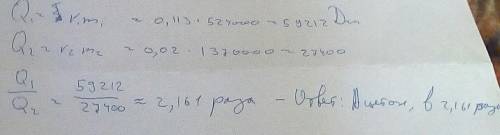 Q₁ = r₁m₁ = 0,113 · 524000 = 59212 Дж
Q₂ = r₂m₂ = 0,02 · 1370000 = 27400
Q₁/Q₂ = 59212/27400 ≈ 2,161 раза – Ответ: Ацетон, в 2,161 раза